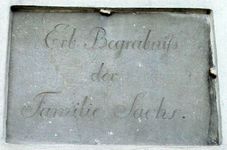 Erb Begräbniſs
der
Familie Sachs.